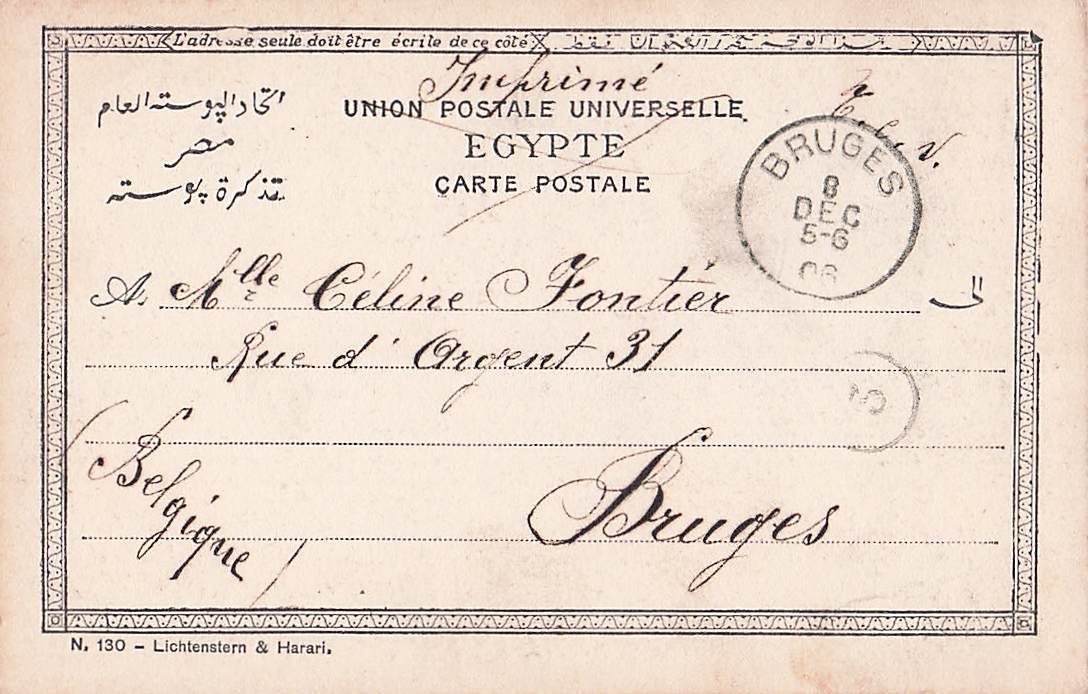 L'adresse seule doit être écrite de ce côté
Imprimé
UNION POSTALE UNIVERSELLE
EGYPTE
CARTE POSTALE
اتحاد البوسته العام
مصر
تذكرة بوسته
T. c. V.
BRUGES
8
DEC
5-6
06
A. Mlle Céline Fontier الى
Rue d'Argent 31
(Belgique)
Bruges
N. 130 - Lichtenstern & Harari.